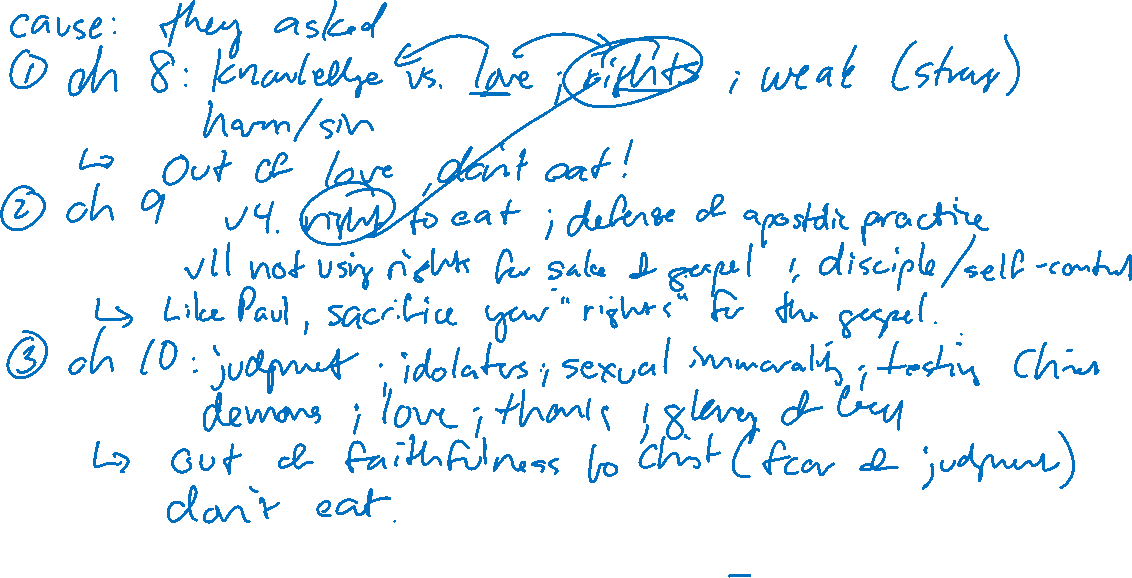 cause: they asked
① ch 8: knowledge vs. love ; rights ; weak (strong)
harm/sin
↳ Out of love, don't eat!
② ch 9 v4. right to eat ; defense of apostolic practice
v11 not using rights for sake of gospel ; disciple/self-control
↳ Like Paul, sacrifice your "rights" for the gospel.
③ ch 10: judgment ; idolaters ; sexual immorality ; testing Christ
demons ; love ; thanks ; glory of God
↳ out of faithfulness to Christ (fear of judgment)
don't eat.